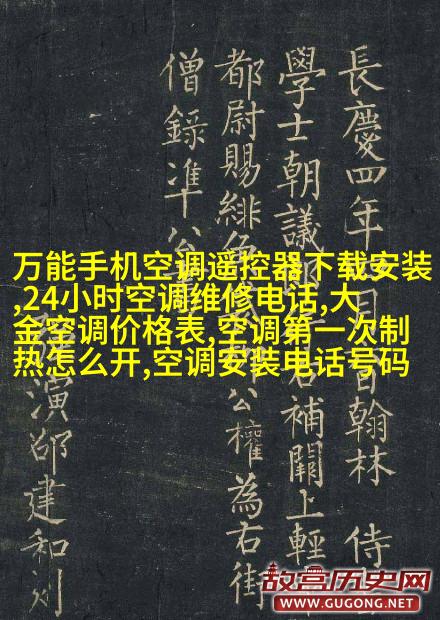 万能手机空调遥控器下载安装
,24小时空调维修电话,大
金空调价格表,空调第一次制
热怎么开,空调安装电话号码
長慶四年 翰林 侍
學士朝議郎 右補闕上輕
都尉賜緋魚 公權為右街
僧錄准公
演邵建和刻
故宫历史网
WWW.GUGONG.NET